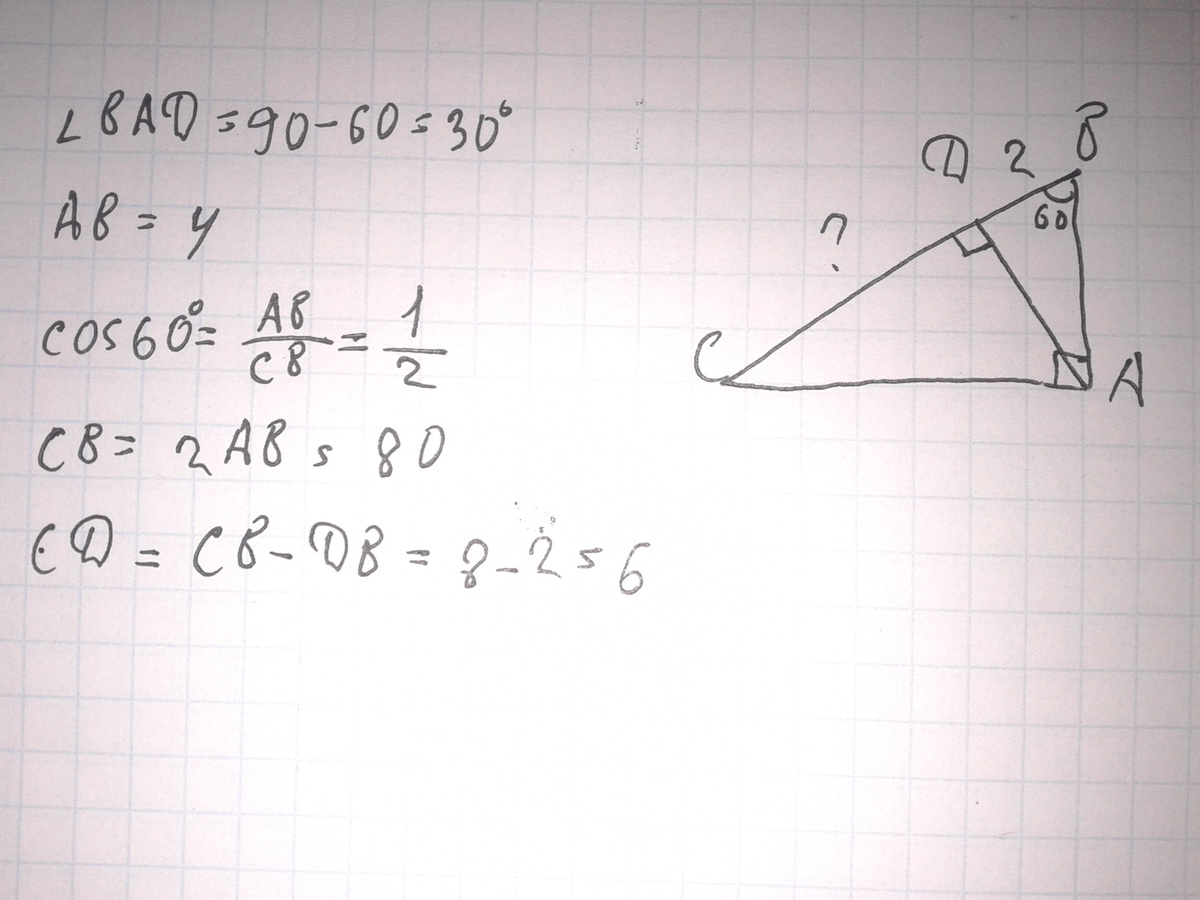 ∠BAD = 90 - 60 = 30°
AB = 4
cos60° = AB/CB = 1/2
CB = 2AB = 80
CD = CB - DB = 8 - 2 = 6
B
D 2
60
?
C
A